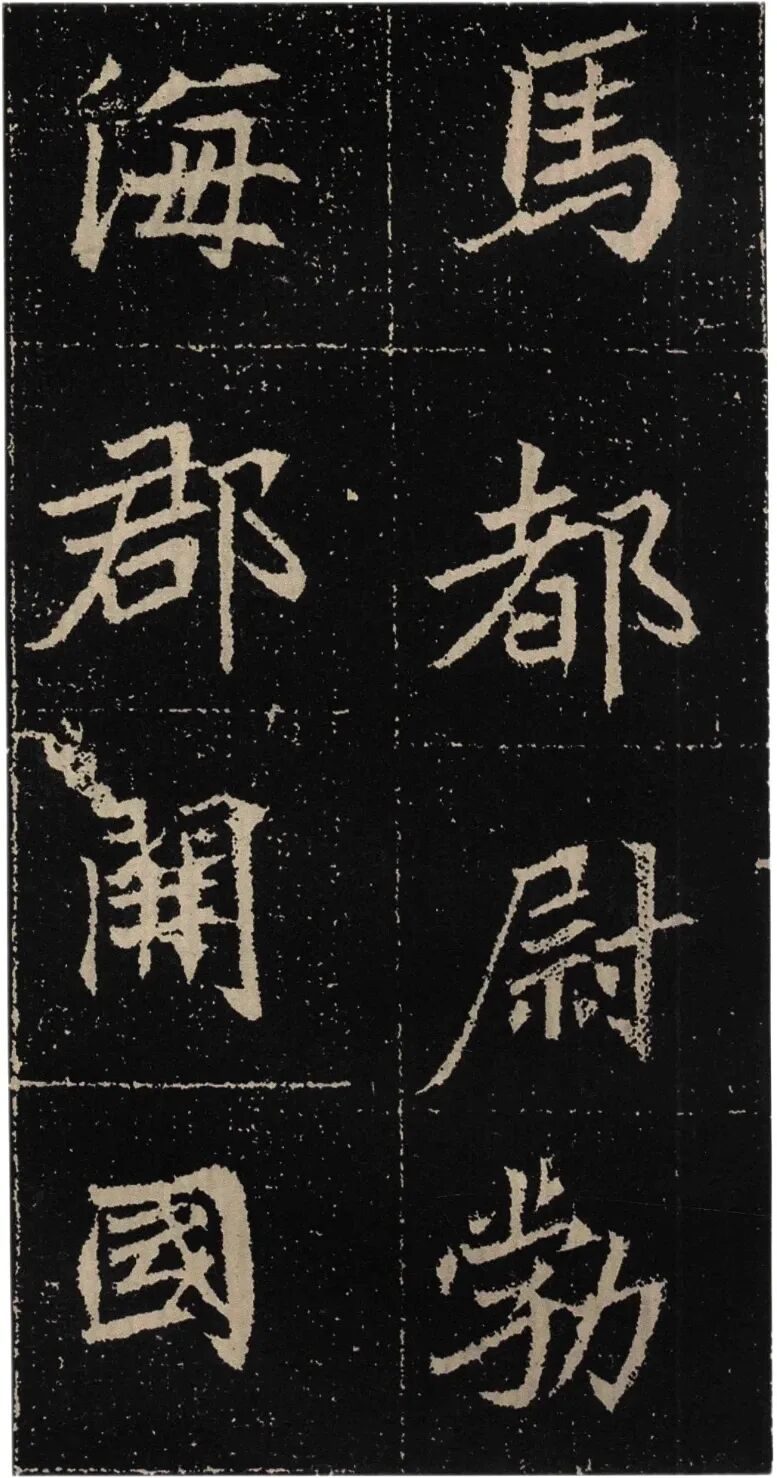 馬都尉勃
海郡開國